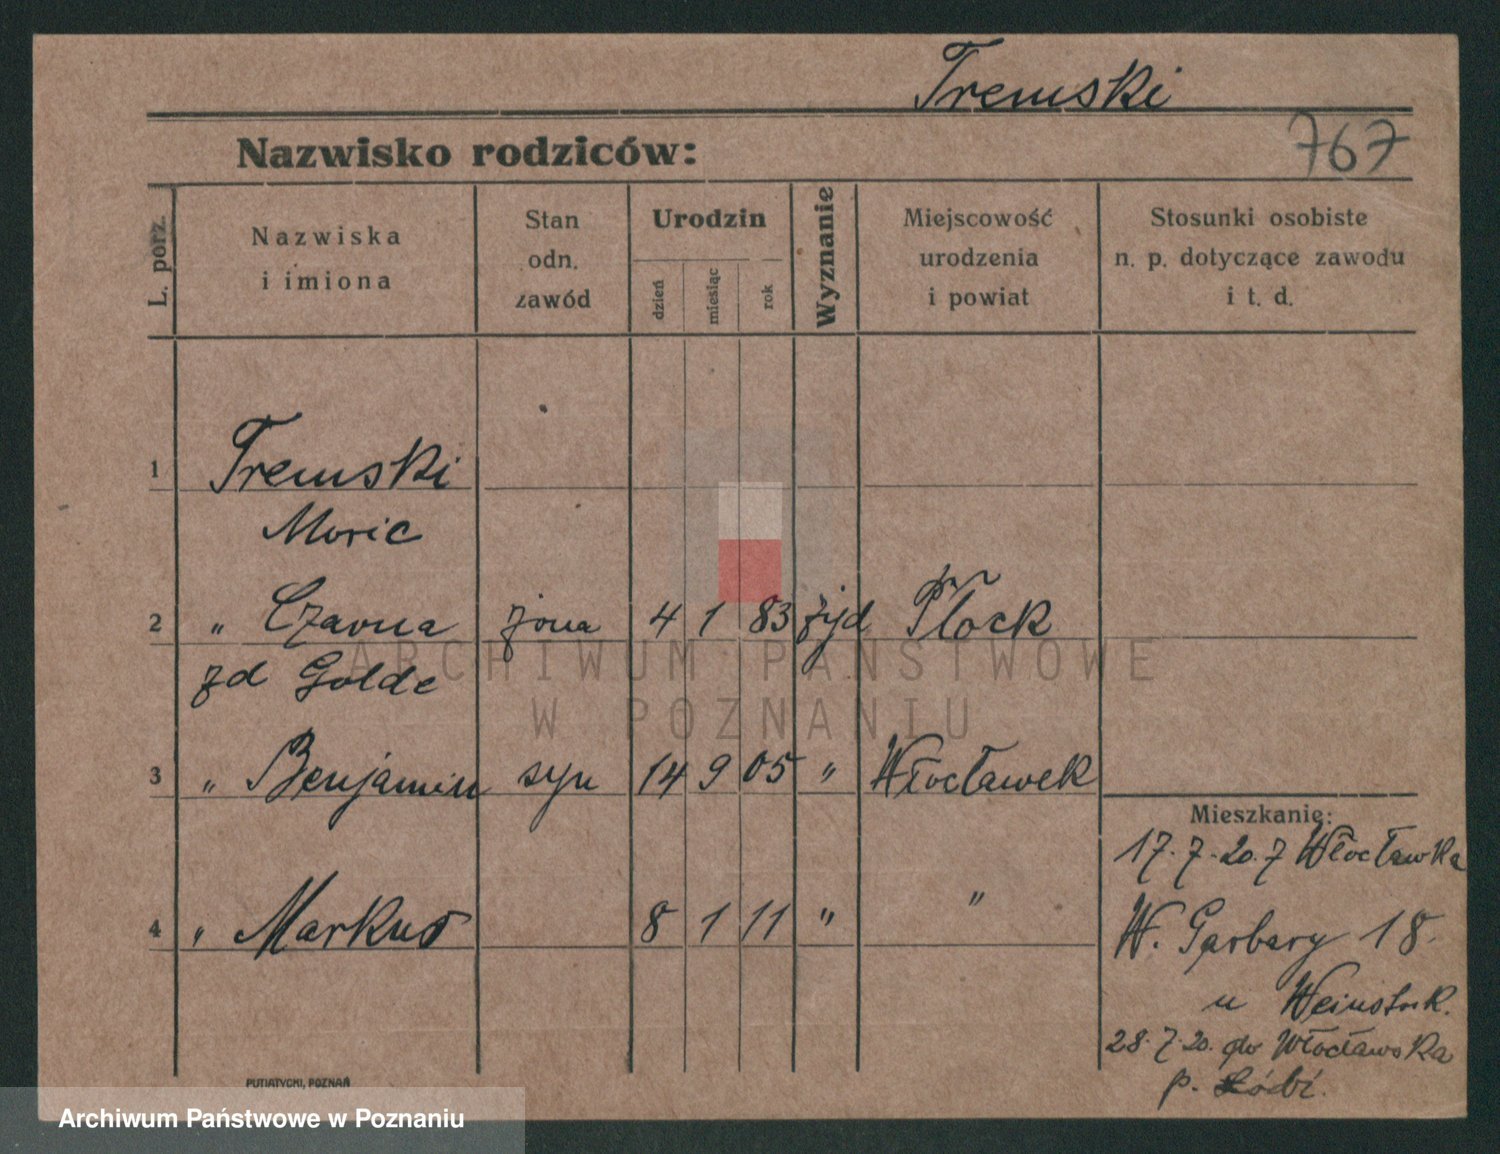 Tremski
Nazwisko rodziców:
767
L. porz.
Nazwiska
i imiona
Stan
odn.
zawód
Urodzin
dzień
miesiąc
rok
Wyznanie
Miejscowość
urodzenia
i powiat
Stosunki osobiste
n. p. dotyczące zawodu
i t. d.
1 Tremski
Moric
2 " Czarna żona 4 1 83 żyd Płock
zd Golde
3 " Benjamin syn 14 9 05 " Włocławek
4 " Markus 8 1 11 " "
Mieszkanie:
17.7.20. z Włocławka
W. Garbary 18.
u Weinstock.
28.7.20. do Włocławska
p. Łódź.
PUTIATYCKI, POZNAŃ
ARCHIWUM PAŃSTWOWE
W POZNANIU
Archiwum Państwowe w Poznaniu